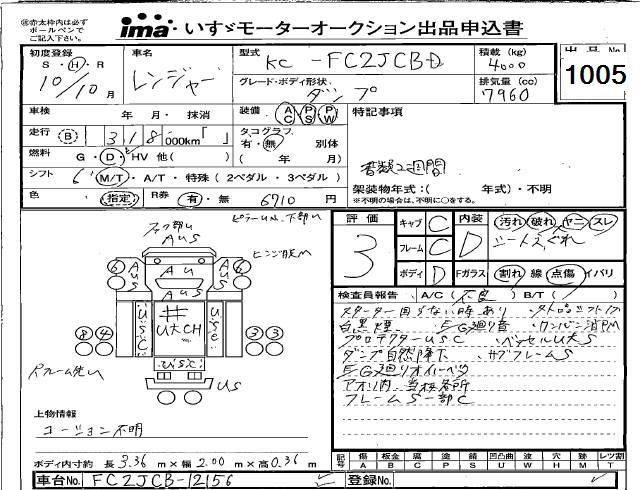 ㊟赤太枠内は必ず
ボールペンで
ご記入下さい。
ima・いすゞモーターオークション出品申込書
初度登録
S・H・R
10/10月
車名
レンジャー
型式
KC-FC2JCBD
グレード・ボディ形状
ダンプ
積載(kg)
4000
排気量(cc)
7960
出品No
1005
車検 年 月・抹消
装備 AC PS PW
特記事項
走行 B 318,000km「 」
タコグラフ
有・無 別体
( 年 月)
燃料 G・D・HV 他( )
書類2週間
シフト 6 M/T・A/T・特殊(2ペダル・3ペダル)
架装物年式:( 年式)・不明
※不明の場合は、不明に○をする。
色 指定 R券 有・無 6710円
評価
3
キャブ C
フレーム C
ボディ D
内装
D
Fガラス
汚れ 破れ ヤニ スレ
シートえぐれ
割れ 線 点傷 イバリ
ピラーUS、下部U
AUS
AU
AUS
USC
U大CH
USC
USC
US
6
6
8 4
3 3
検査員報告 A/C(不良) B/T( )
スターター回らない時あり
白黒煙、E/G廻り音
プロテクターUSC
ダンプ自然降下、サブフレームS
E/G廻りオイルベタつ
フレームS一部C
上物情報
コーション不明
ボディ内寸約 長3.36m×幅2.00m×高0.36m
記号
傷 板金 腐 塗 錆 凹凸曲 波 穴 跡 レツ割
A B C P S U W H M T
車台No. FC2JCB-12156
登録No.